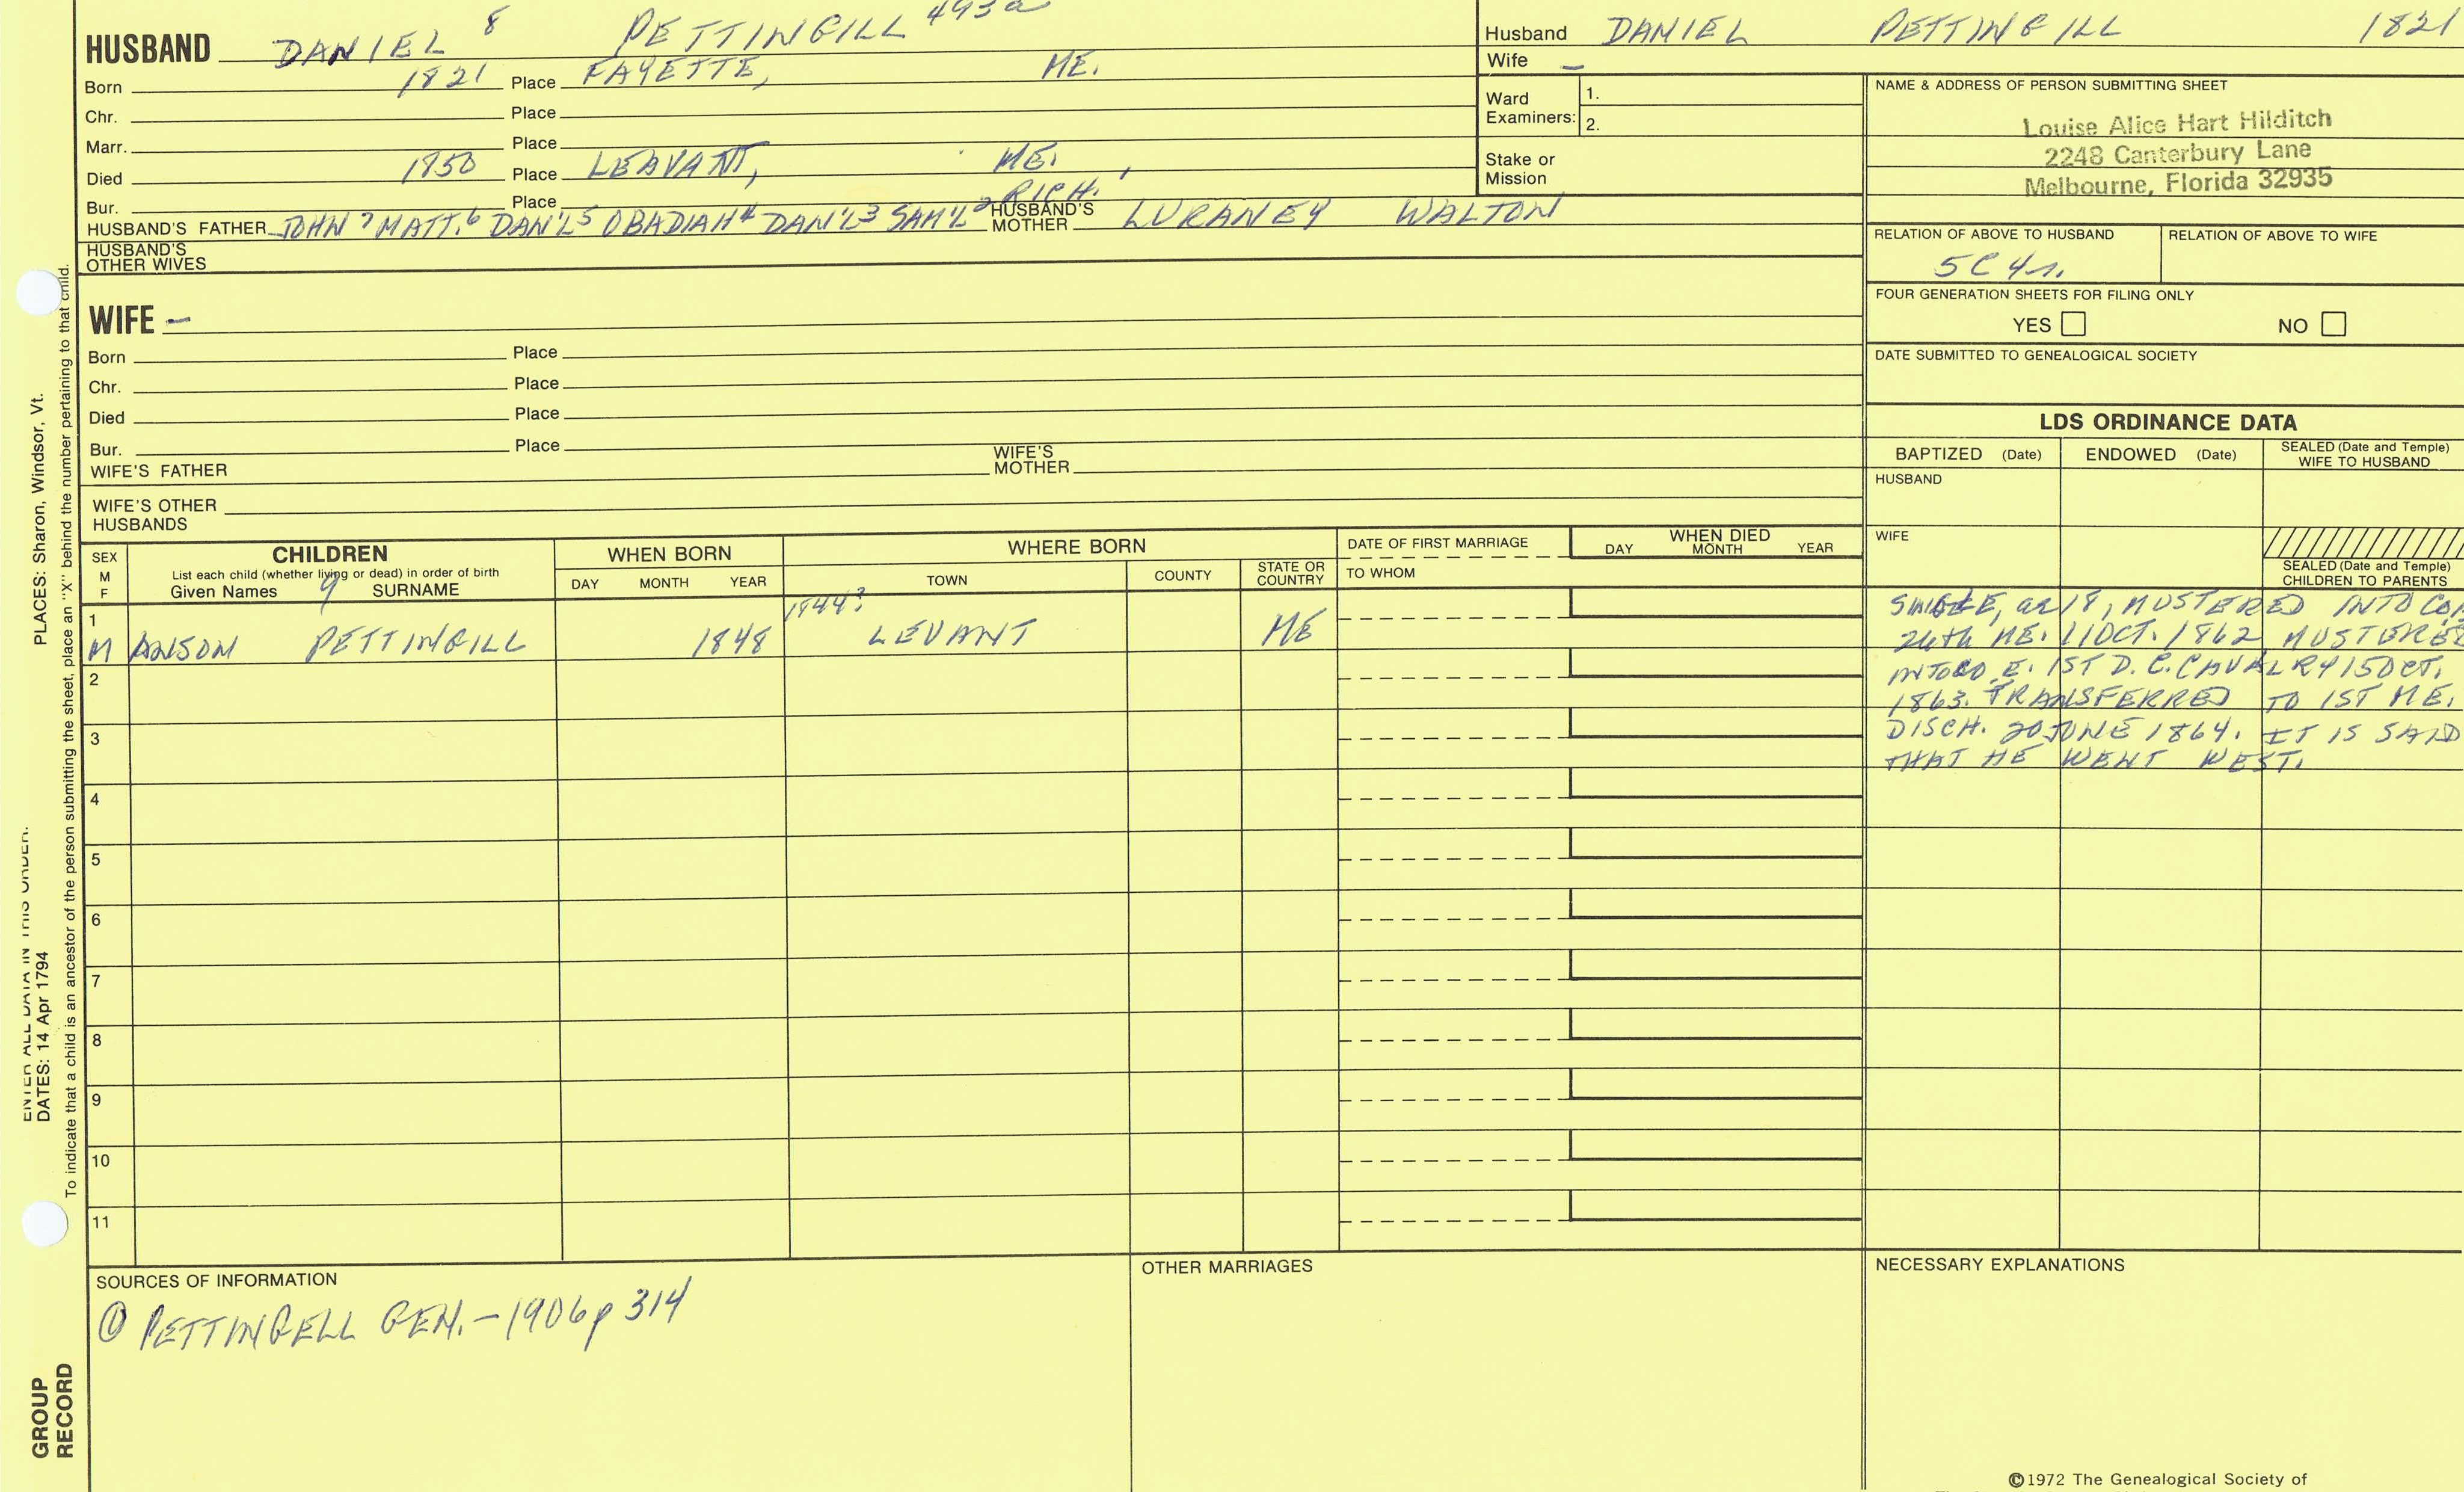 HUSBAND DANIEL 8 PETTINGILL 493a
Born 1821 Place FAYETTE, ME.
Chr. Place
Marr. Place
Died 1850 Place LEAVANT, ME.
Bur. Place
HUSBAND'S FATHER JOHN 7 MATT. 6 DAN'L 5 OBADIAH 4 DAN'L 3 SAM'L 2 RICH. 1 HUSBAND'S MOTHER LURANEY WALTON
HUSBAND'S
OTHER WIVES
WIFE -
Born Place
Chr. Place
Died Place
Bur. Place
WIFE'S FATHER WIFE'S MOTHER
WIFE'S OTHER
HUSBANDS
Husband DANIEL PETTINGILL 1821
Wife -
Ward
Examiners:
1.
2.
Stake or
Mission
NAME & ADDRESS OF PERSON SUBMITTING SHEET
Louise Alice Hart Hilditch
2248 Canterbury Lane
Melbourne, Florida 32935
RELATION OF ABOVE TO HUSBAND RELATION OF ABOVE TO WIFE
5C 4r.
FOUR GENERATION SHEETS FOR FILING ONLY
YES NO
DATE SUBMITTED TO GENEALOGICAL SOCIETY
LDS ORDINANCE DATA
BAPTIZED (Date) ENDOWED (Date) SEALED (Date and Temple)
WIFE TO HUSBAND
HUSBAND
WIFE
SEALED (Date and Temple)
CHILDREN TO PARENTS
SEX
M
F
CHILDREN
List each child (whether living or dead) in order of birth
Given Names 9 SURNAME
WHEN BORN
DAY MONTH YEAR
WHERE BORN
TOWN COUNTY STATE OR
COUNTRY
DATE OF FIRST MARRIAGE
TO WHOM
WHEN DIED
DAY MONTH YEAR
1 1844?
M ANSON PETTINGILL 1848 LEVANT ME
SINGLE, ae 18, MUSTERED INTO CO.
26th ME. 11 OCT. 1862 MUSTERED
INTO CO. E. 1ST D.C. CAVALRY 15 OCT.
1863. TRANSFERRED TO 1ST ME.
DISCH. 20 JUNE 1864. IT IS SAID
THAT HE WENT WEST.
2
3
4
5
6
7
8
9
10
11
SOURCES OF INFORMATION
① PETTINGELL GEN. - 1906 p 314
OTHER MARRIAGES
NECESSARY EXPLANATIONS
©1972 The Genealogical Society of
ENTER ALL DATA IN THIS ORDER.
DATES: 14 Apr 1794 PLACES: Sharon, Windsor, Vt.
To indicate that a child is an ancestor of the person submitting the sheet, place an "X" behind the number pertaining to that child.
GROUP
RECORD